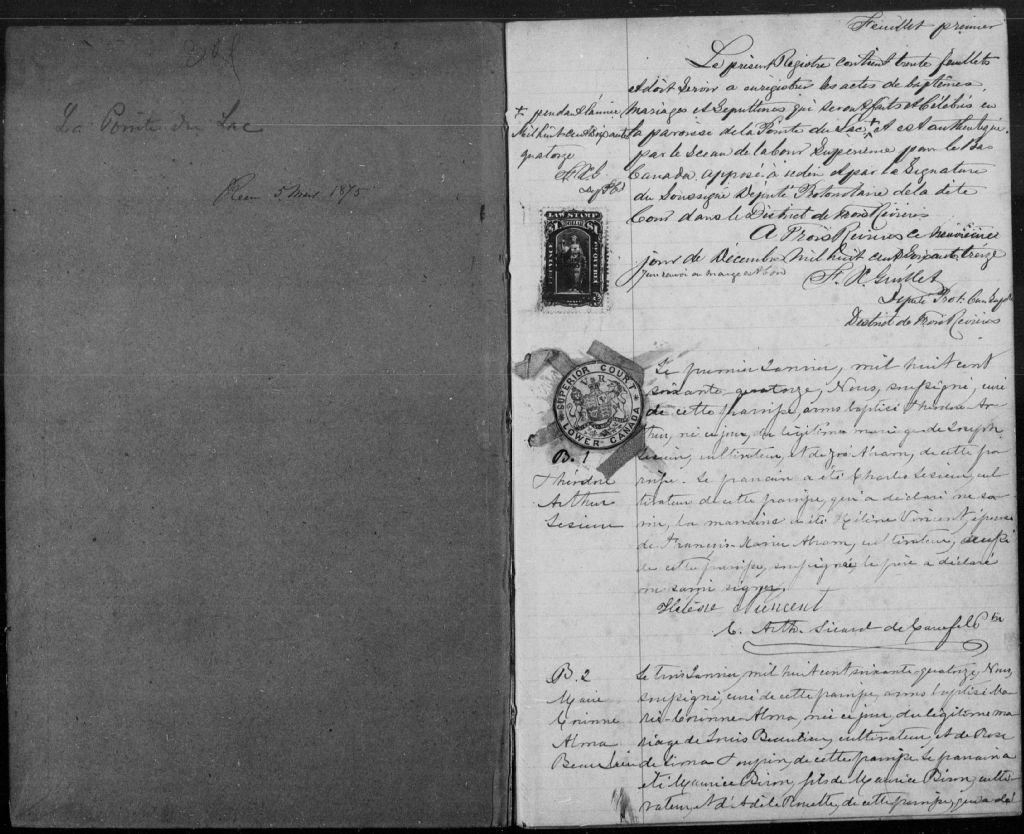 La Pointe du Lac
5 Mars 1875
Feuillet premier
Le présent Registre contient trente feuillets
et doit servir a enregistrer les actes de baptêmes,
mariages et sépultures qui seront faits et célébrés en
la paroisse de la Pointe du Lac + et est authentiqué
par le sceau de la Cour Supérieure pour le Bas
Canada apposé à et par la Signature
du Soussigné Député Protonotaire de la dite
Cour dans le District de Trois Rivières
A Trois Rivières ce neuvième
jour de Décembre mil huit cent soixante treize
Un renvoi en marge est bon
+ pendant l'année
mil huit cent soixante
quatorze
F. X. G
Dep
F. X. Guillet
Député Prot. Cour Sup
District de Trois Rivières
LAW STAMP
SUPERIOR COURT
V R
LOWER-CANADA
B. 1
Théodore
Arthur
Lesieur
Le premier Janvier, mil huit cent
soixante-quatorze, Nous, soussigné, curé
de cette paroisse, avons baptisé Théodore Ar-
thur, né ce jour, du légitime mariage de Joseph
Lesieur, cultivateur, et de Zoé Abram, de cette pa-
roisse. Le parrain a été Charles Lesieur, cul-
tivateur de cette paroisse, qui a déclaré ne sa-
voir, la marraine a été Hélène Vincent, épouse
de François-Xavier Abram, cultivateur, aussi
de cette paroisse, soussignée, le père a déclaré
ne savoir signer.
Hélène Vincent
C. Arth. Sicard de Carufel Ptre
B. 2
Marie
Corinne
Alma
Beaulieu
Le trois Janvier, mil huit cent soixante-quatorze, Nous,
soussigné, curé de cette paroisse, avons baptisé Ma-
rie-Corinne-Alma, née ce jour, du légitime ma-
riage de Louis Beaulieu, cultivateur, et de Rose
de Lima Toupin, de cette paroisse. Le parrain a
été Maurice Biron, fils de Maurice Biron, culti-
vateur, et d'Adèle Rouette, de cette paroisse, qui a dé